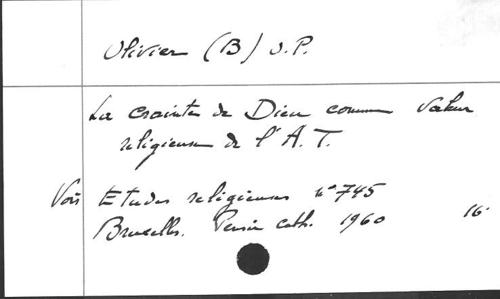 Olivier (B) O.P.
La crainte de Dieu comme valeur
religieuse de l'A.T.
Voir Etudes religieuses n° 745
Bruxelles. Pensée cath. 1960 16°